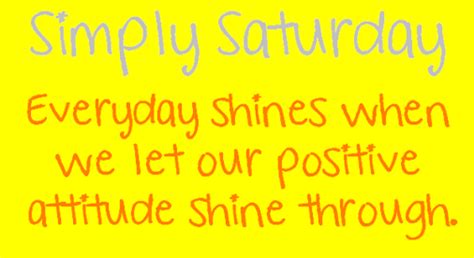 Simply Saturday
Everyday shines when
we let our positive
attitude shine through.